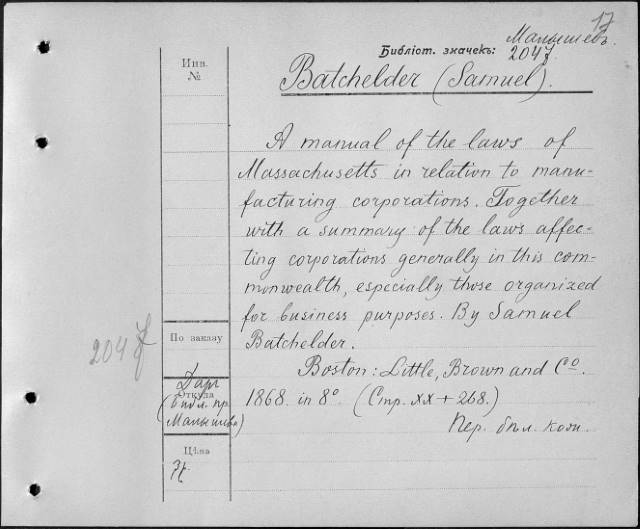 17
Малышевъ.
Библіот. значекъ: 204
Batchelder (Samuel).
Инв.
№
A manual of the laws of
Massachusetts in relation to manu-
facturing corporations. Together
with a summary of the laws affec-
ting corporations generally in this com-
monwealth, especially those organized
for business purposes. By Samuel
Batchelder.
Boston: Little, Brown and Cº.
1868. in 8º. (Стр. xx + 268.)
Пер. бѣл. кожи.
204
По заказу
Даръ
Откуда
(библ. пр.
Малышева)
Цѣна